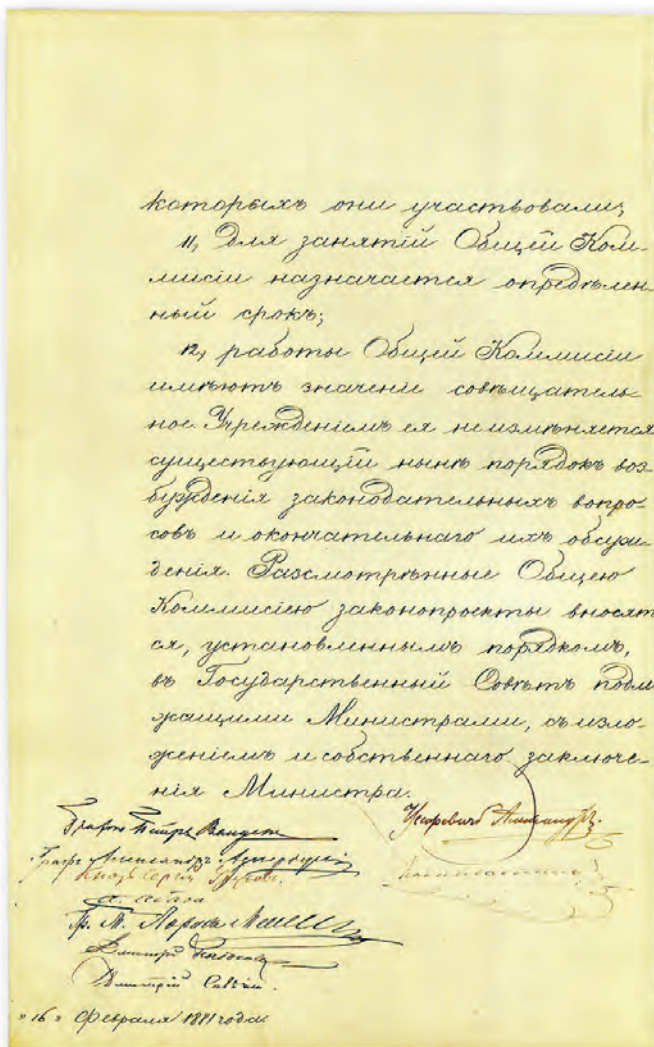 которыхъ они участвовали;
11, Для занятій Общей Ком-
мисіи назначается опредѣлен-
ный срокъ;
12, работы Общей Коммисіи
имѣютъ значеніе совѣщатель-
ное. Учрежденіемъ ея не измѣняется
существующій нынѣ порядокъ воз-
бужденія законодательныхъ вопро-
совъ и окончательнаго ихъ обсуж-
денія. Разсмотрѣнные Общею
Коммисіею законопроекты вносят-
ся, установленнымъ порядкомъ,
въ Государственный Совѣтъ подле
жащими Министрами, съ изло-
женіемъ и собственнаго заключе-
нія Министра.
Цесаревичъ Александръ
Графъ Петръ Валуевъ
Графъ Александръ Адлербергъ
Князь Сергій Урусовъ.
А. Абаза
Гр. М. Лорисъ Мели
Дмитрій
Дмитрій
"16" Февраля 1881 года